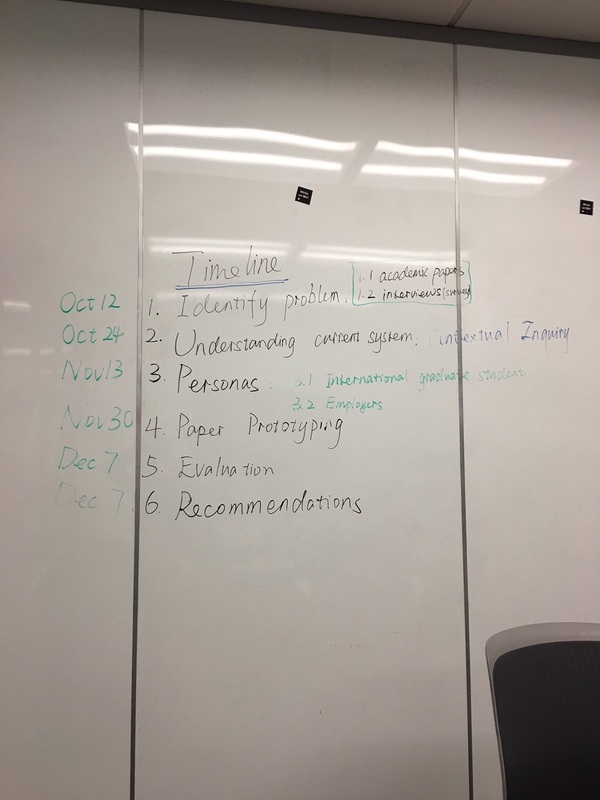 Timeline
1.1 academic papers
1.2 interviews/survey
Oct 12 1. Identify problem.
Oct 24 2. Understanding current system: Contextual Inquiry
Nov 13 3. Personas: 3.1 International graduate student
3.2 Employers
Nov 30 4. Paper Prototyping
Dec 7 5. Evaluation
Dec 7. 6. Recommendations